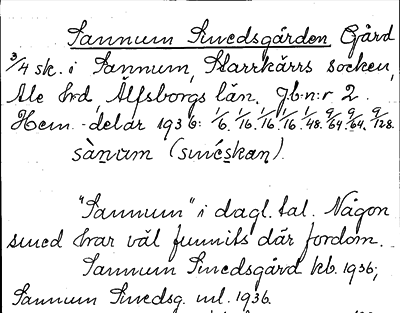 Sannum Smedsgården Gård
3/4 sk. i Sannum, Starrkärrs socken,
Ale hrd, Älfsborgs län. Jb:n:r 2.
Hem. delar 1936: 1/6. 1/16. 1/16. 1/16. 1/48. 9/64. 9/64. 9/128.
sànum (sméskan).
"Sannum" i dagl. tal. Någon
smed har väl funnits där fordom.
Sannum Smedsgård kb. 1936;
Sannum Smedsg. ml. 1936.